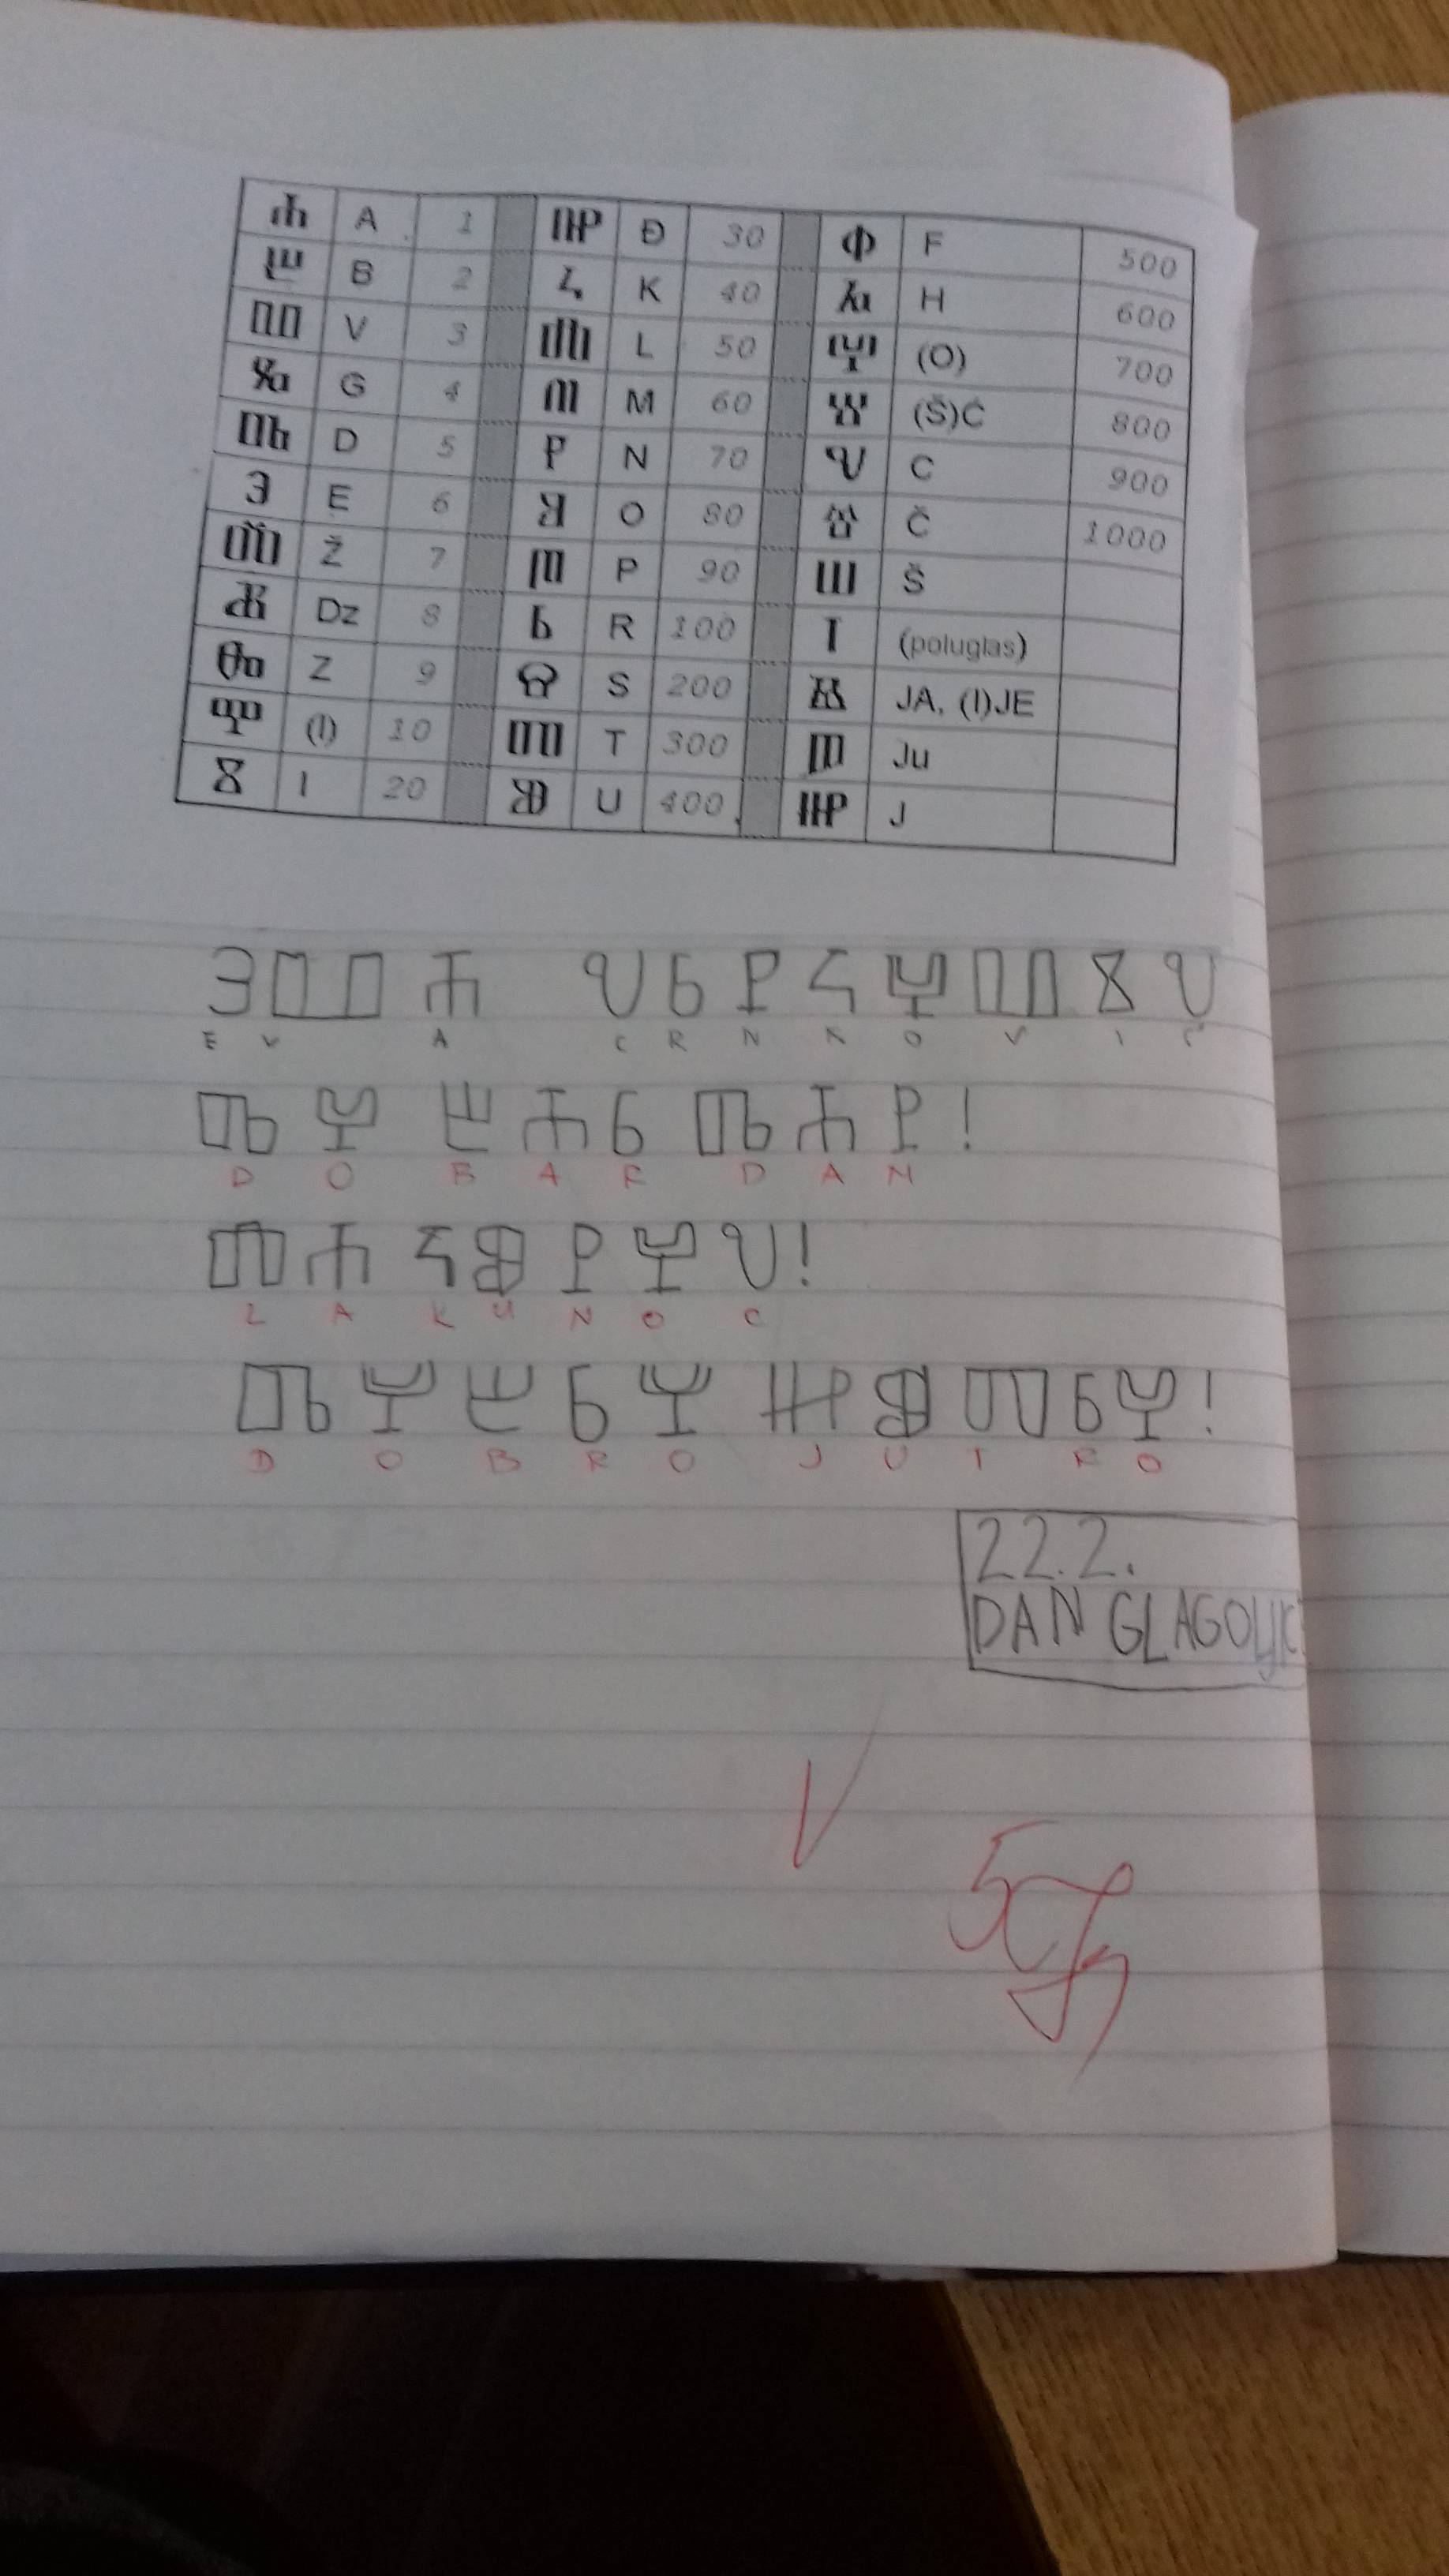 Ⰰ A 1 ⰌP Đ 30 Ⱇ F 500
Ⰱ B 2 Ⰽ K 40 Ⱈ H 600
Ⰲ V 3 Ⰾ L 50 Ⱉ (O) 700
Ⰳ G 4 Ⰿ M 60 Ⱋ (Š)Ć 800
Ⰴ D 5 Ⱀ N 70 Ⱌ C 900
Ⰵ E 6 Ⱁ O 80 Ⱍ Č 1000
Ⰶ Ž 7 Ⱂ P 90 Ⱎ Š
Ⰷ Dz 8 Ⱃ R 100 Ⰺ (poluglas)
Ⰸ Z 9 Ⱄ S 200 Ⱑ JA, (I)JE
Ⰹ (I) 10 Ⱅ T 300 Ⱓ Ju
Ⰻ I 20 Ⱆ U 400 J
ⰅⰂⰀ ⰜⰓⰐⰍⰙⰂⰋⰜ
E V A C R N K O V I Ć
ⰄⰙⰁⰀⰓ ⰄⰀⰐ!
D O B A R D A N
ⰎⰀⰍⰖⰐⰙⰜ!
L A K U N O C
ⰄⰙⰁⰓⰙ ⰌⰖⰕⰓⰙ!
D O B R O J U T R O
22.2.
DAN GLAGOLJICE
5